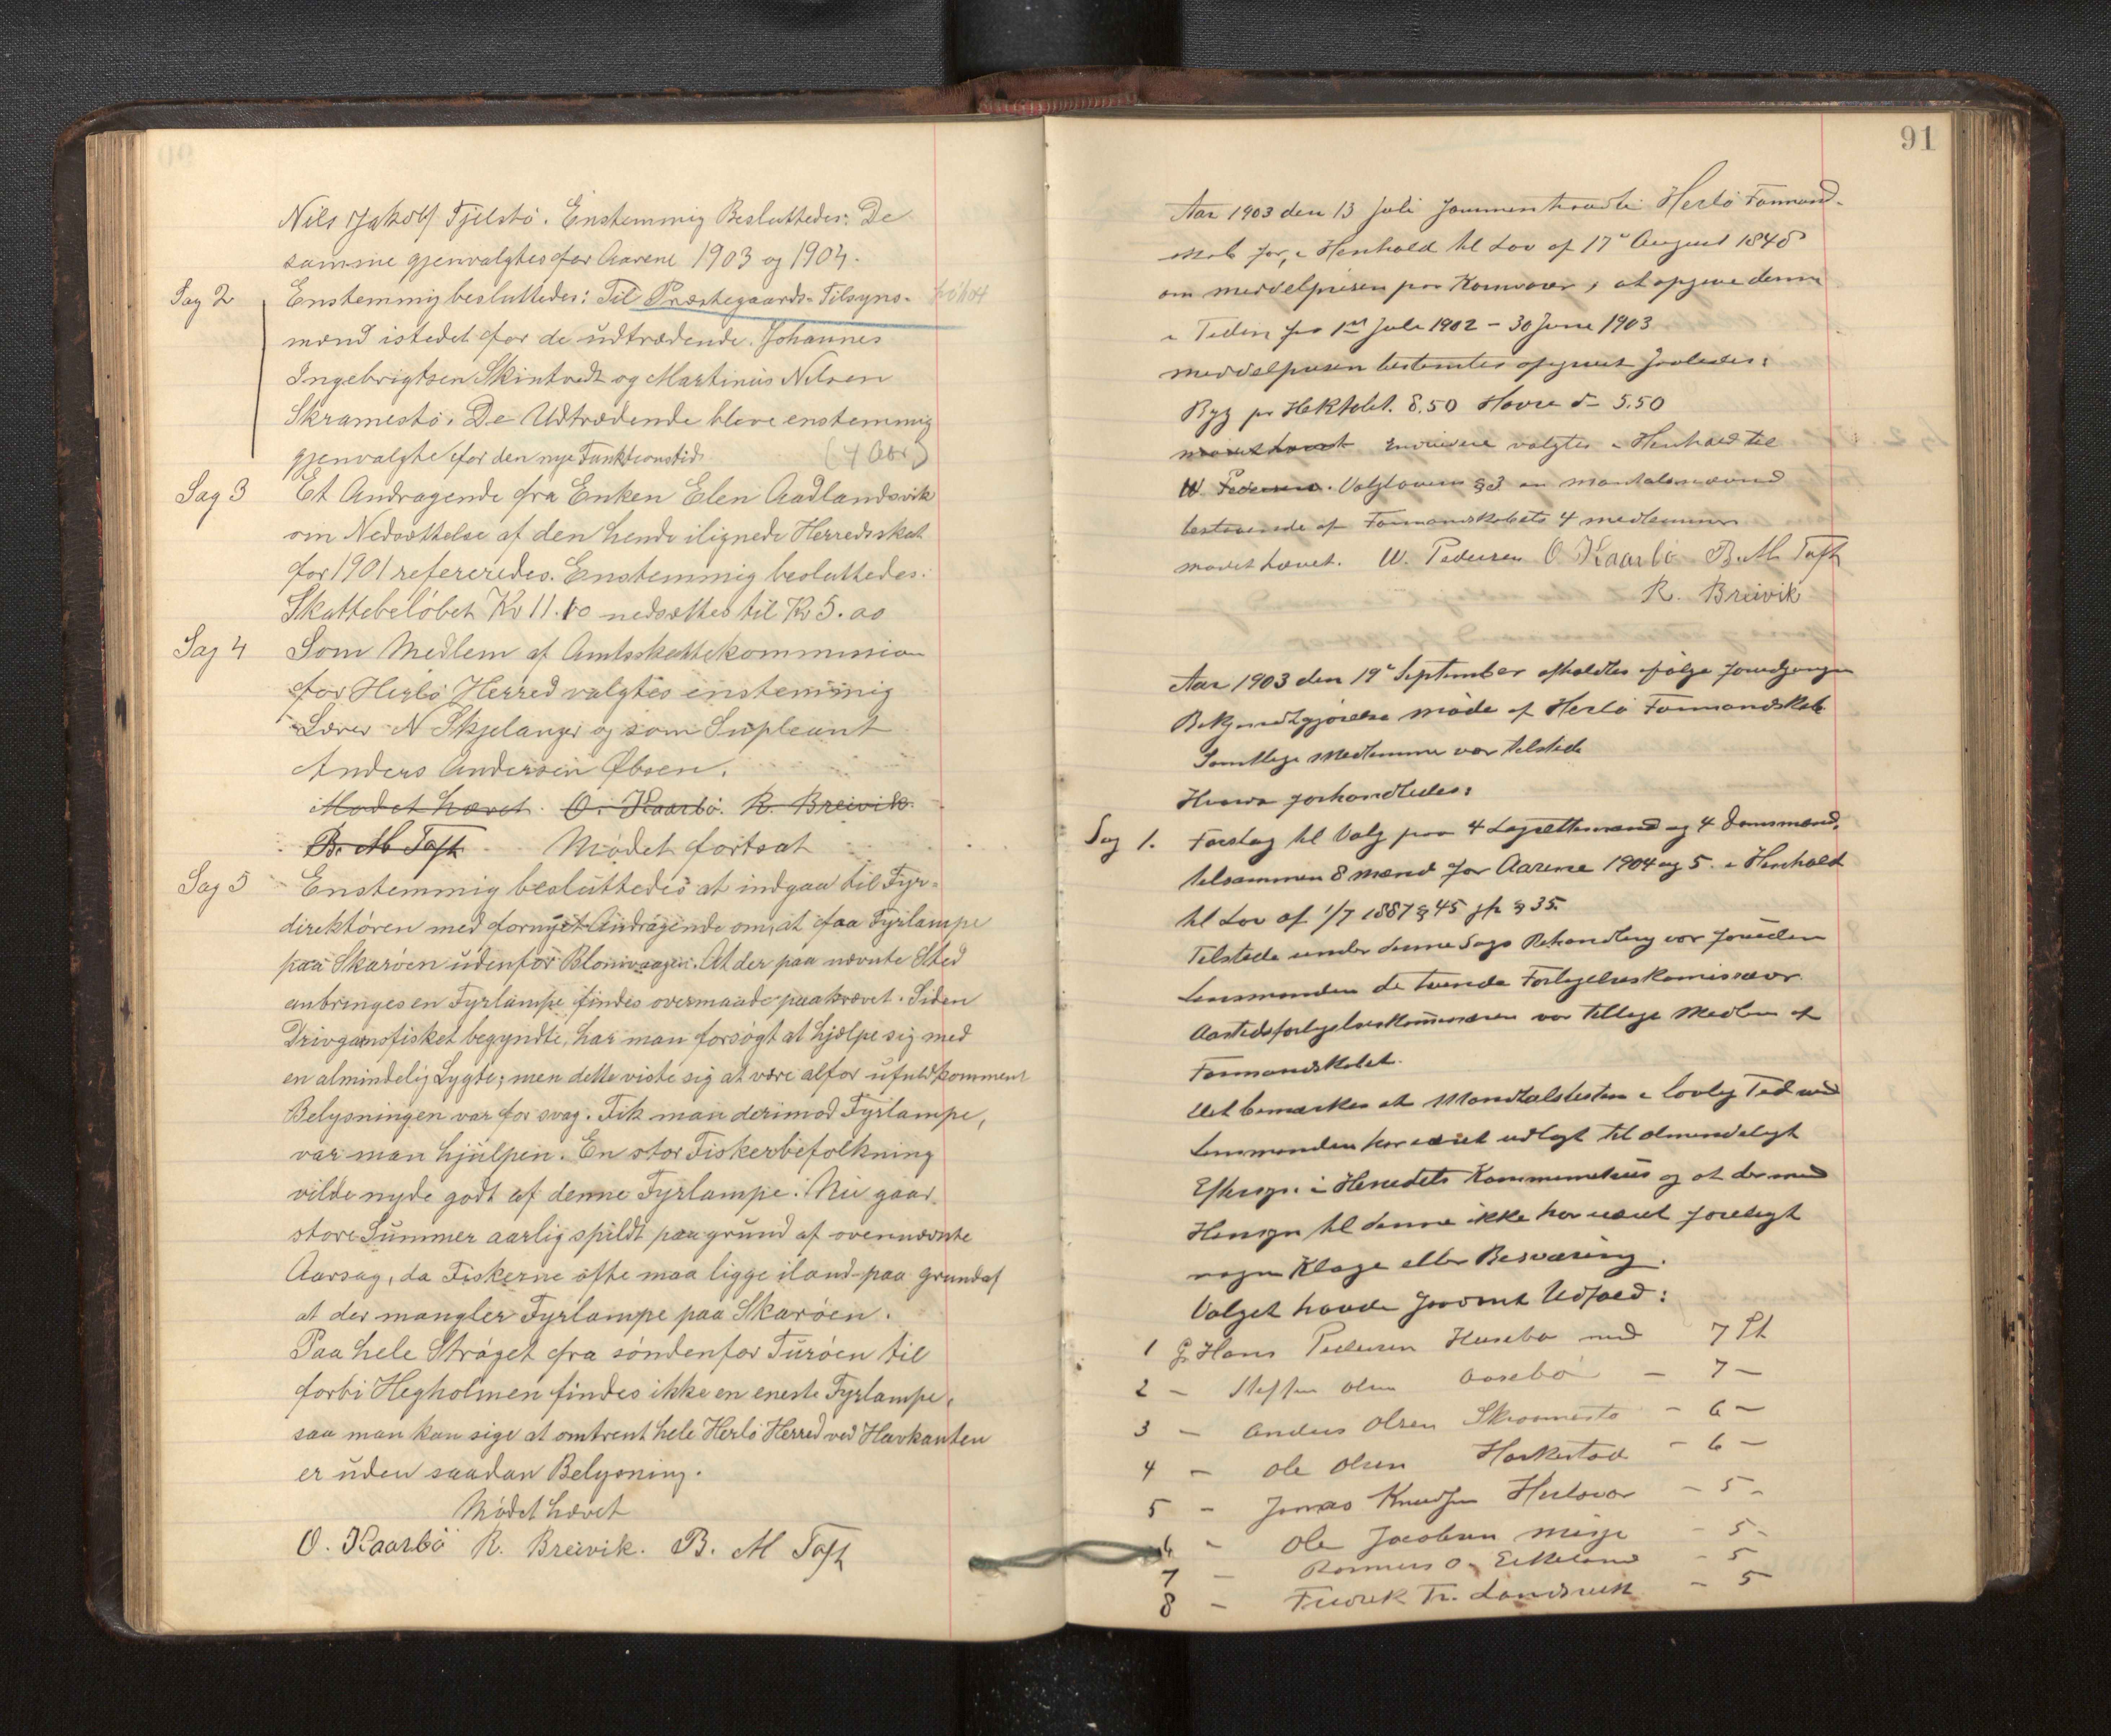 Nils Jakobs Fjelstö. Enstemmig Besluttedes: De
samme gjenvalgtes for Aarene 1903 og 1904.
Sag 2 Enstemmig besluttedes: Til Præstegaards-Tilsyns-
mænd istedet for de udtrædende Johannes
Ingebrigtsen Skintvedt og Martinus Nilsen
Skramestö. De Udtrædende bleve enstemmig
gjenvalgte for den nye Funktionstid (4 Aar)
Sag 3 Et Andragende fra Enken Elen Aadlandsvik
om Nedsættelse af den hende ilignede Herredsskat
for 1901 refereredes. Enstemmig besluttedes:
Skattebelöbet Kr 11.10 nedsættes til Kr 5.00
Sag 4 Som Medlem af Amtsskattekommission
for Herlö Herred valgtes enstemmig
Lærer N Skjelanger og som Supleant
Anders Andersen Øbsen.
Mødet hævet. O. Kaarbö. R. Breivik.
B. M Toft Mødet fortsat
Sag 5 Enstemmig besluttedes at indgaa til Fyr-
direktören med fornyet Andragende om, at faa Fyrlampe
paa Skaröen udenfor Blomvaagen. At der paa nævnte Sted
anbringes en Fyrlampe findes overmaade paakrævet. Siden
Drivgarnsfisket begyndte, har man forsögt at hjælpe sig med
en almindelig Lygte; men dette viste sig at være alfor ufuldkomment
Belysningen var for svag. Fik man derimod Fyrlampe,
var man hjulpen. En stor Fiskerbefolkning
vilde nyde godt af denne Fyrlampe. Nu gaar
store Summer aarlig spildt paa grund af ovennævnte
Aarsag, da Fiskerne ofte maa ligge iland paa grund af
at der mangler Fyrlampe paa Skaröen.
Paa hele Ströget fra söndenfor Turöen til
forbi Hegholmen findes ikke en eneste Fyrlampe,
saa man kan sige at omtrent hele Herlö Herred ved Havkanten
er uden saadan Belysning.
Mödet hævet
O. Kaarbö R. Breivik. B. M Toft
91
Aar 1903 den 13 Juli sammentraadte Herlö Formand-
skab for, i Henhold til Lov af 17de August 1848
om middelprisen paa Kornvarer, at opgive denne
i Tiden fra 1ste Juli 1902 - 30 Juni 1903
Middelprisen bestemtes opgivet saaledes:
Byg pr Hektolit. 8,50 Havre do 5,50
mödet hævet Endvidere valgtes i Henhold til
W. Pedersen. Valglovens § 3 en mantalsnævnd
bestaaende af Formandskabets 4 medlemmer
mödet hævet. W. Pedersen O Kaarbö B. M. Toft
R. Breivik
Aar 1903 den 19de September afholdtes ifølge foregaaende
Bekjendtgjörelse möde af Herlö Formandskab
Samtlige medlemmer var tilstede
Hvorda forhandledes:
Sag 1. Forslag til Valg paa 4 Lagrettemænd og 4 Domsmænd,
tilsammen 8 mænd for Aarene 1904 og 5. i Henhold
til Lov af 1/7 1887 § 45 jfr § 35.
Tilstede under denne Sags Behandling var foruden
Lensmanden de tvende Forligelseskomissærer.
Aastedsforligelseskommissæren var tillige Medlem af
Formandskabet.
Det bemærkes at Mandtalslisten i lovlig Tid ved
Lensmanden har været udlagt til almindeligt
Eftersyn i Herredets Kommunehus og at der med
Hensyn til denne ikke har været forelagt
nogen Klage eller Besværing.
Valget havde saadant Udfald:
1 G Hans Pedersen Husebø med 7 St
2 - Steffen Olsen Aasebö - 7 -
3 - Anders Olsen Skramestö - 6 -
4 - Ole Olsen Harkestad - 6 -
5 - Jonas Knudsen Herlevær - 5 -
6 - Ole Jacobsen Minge - 5 -
7 - Rasmus O. Eikeland - 5
8 - Fredrik Tr. Landsvik - 5